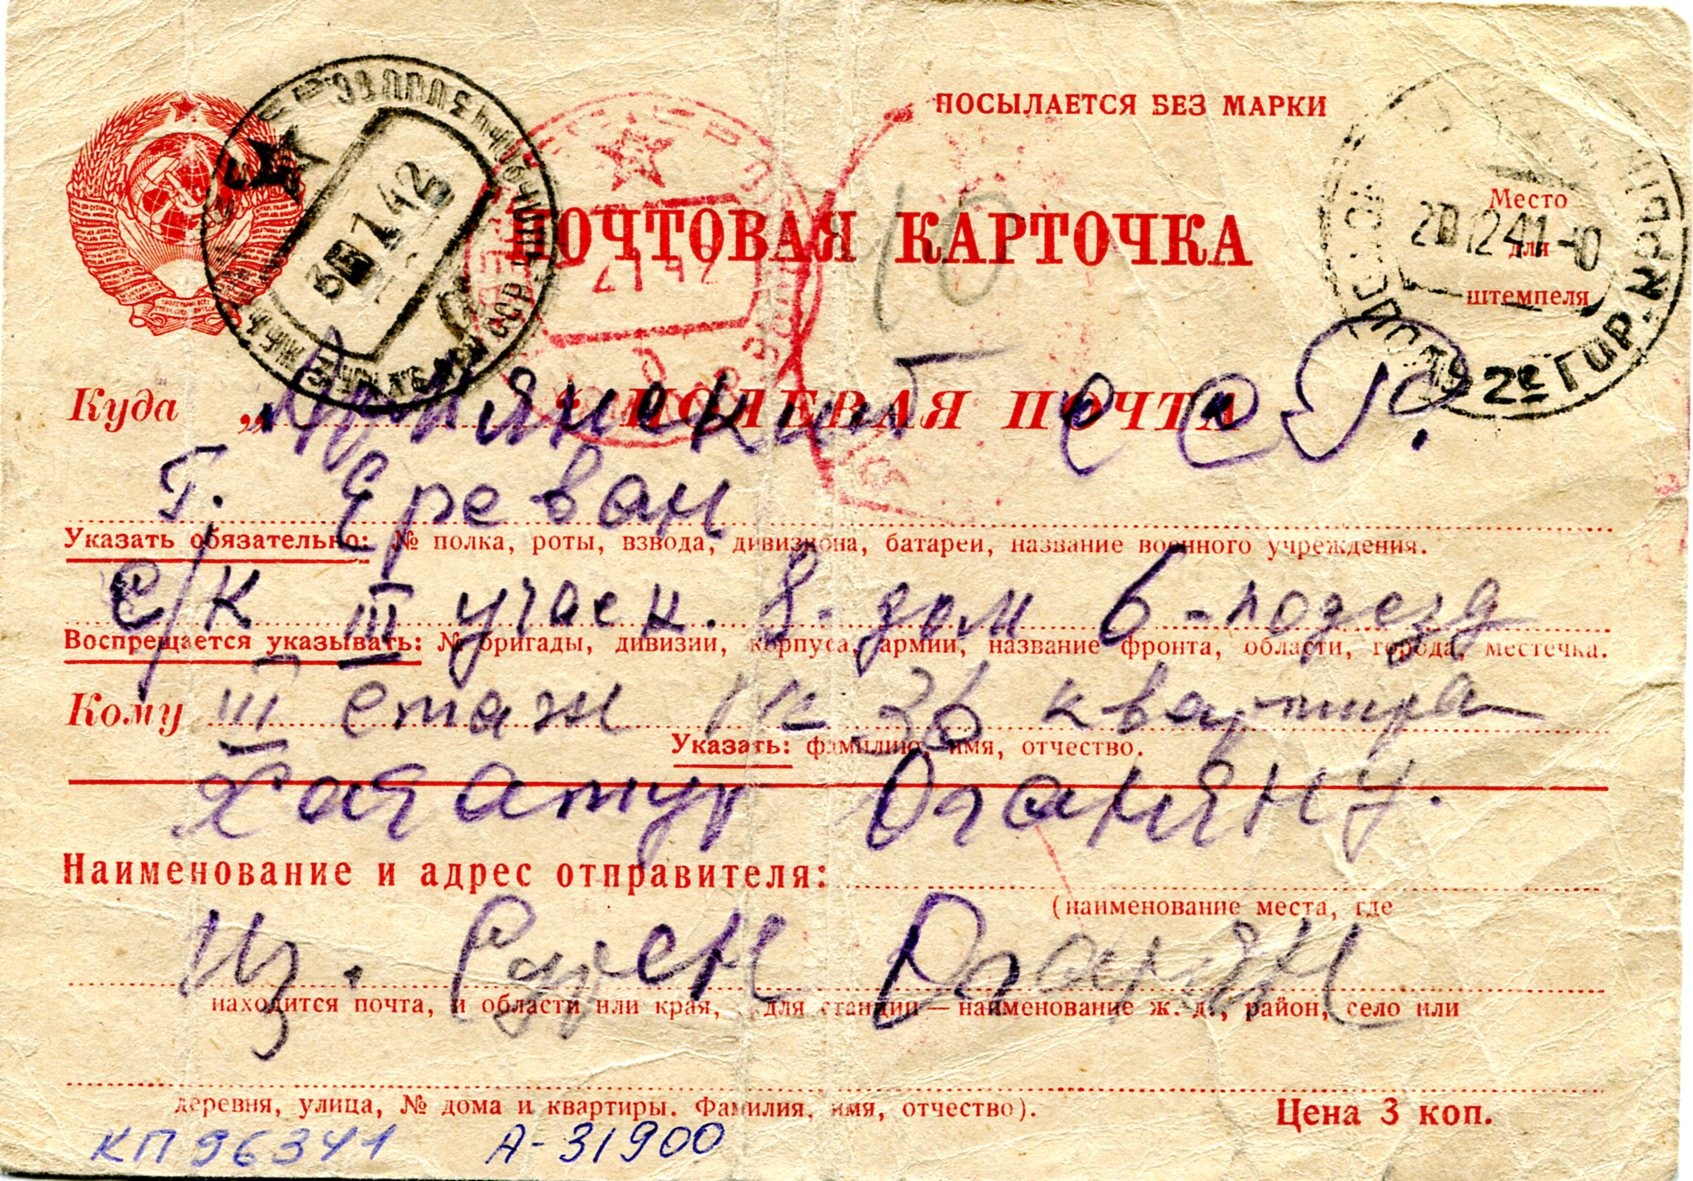 ПОСЫЛАЕТСЯ БЕЗ МАРКИ
ПОЧТОВАЯ КАРТОЧКА
Место
для
штемпеля
30 1 42
2 1 42
10
20 12 41-0
2е ГОР.
Куда „ПОЛЕВАЯ ПОЧТА
Армянский ССР.
г. Ереван
Указать обязательно: № полка, роты, взвода, дивизиона, батареи, название военного учреждения.
с/к III учаск. 8-дом 6-подезд
Воспрещается указывать: № бригады, дивизии, корпуса, армии, название фронта, области, города, местечка.
Кому III етаж 36 квартира
Указать: фамилию, имя, отчество.
Хачатур Оганяну.
Наименование и адрес отправителя:
(наименование места, где
Из. Сурен Оганян
находится почта, и области или края, для станции — наименование ж. д., район, село или
деревня, улица, № дома и квартиры. Фамилия, имя, отчество).
Цена 3 коп.
КП 96341 А-31900